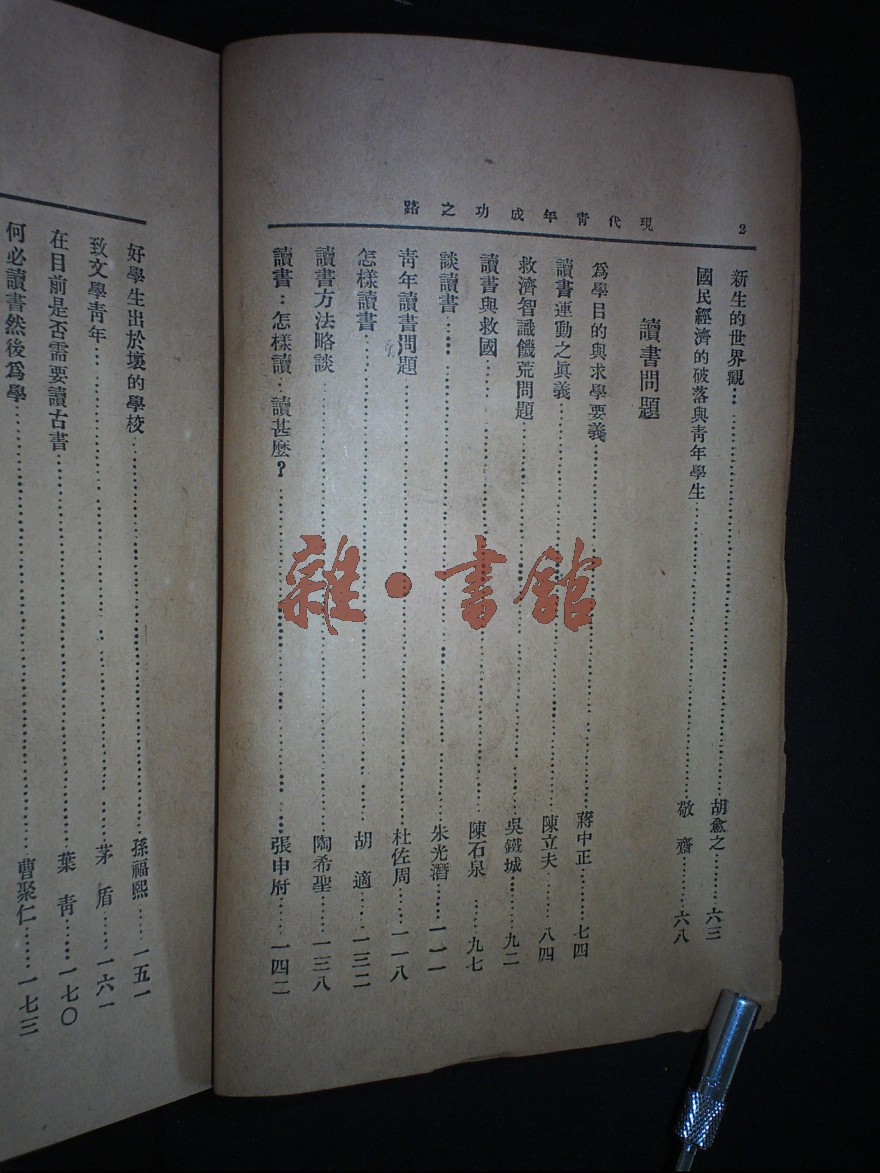 2
路之功成年青代現
新生的世界觀………胡愈之………六三
國民經濟的破落與青年學生………敬齋………六八
讀書問題
爲學目的與求學要義………蔣中正……七四
讀書運動之眞義………陳立夫……八四
救濟智識饑荒問題………吳鐵城……九二
讀書與救國………陳石泉……九七
談讀書………朱光潛……一一一
青年讀書問題………杜佐周……一一八
怎樣讀書………胡適……一三二
讀書方法略談………陶希聖……一三八
讀書：怎樣讀‥讀甚麼？………張申府……一四二
好學生出於壞的學校………孫福熙……一五一
致文學青年………茅盾……一六一
在目前是否需要讀古書………葉青……一七〇
何必讀書然後爲學………曹聚仁……一七三
雜·書館